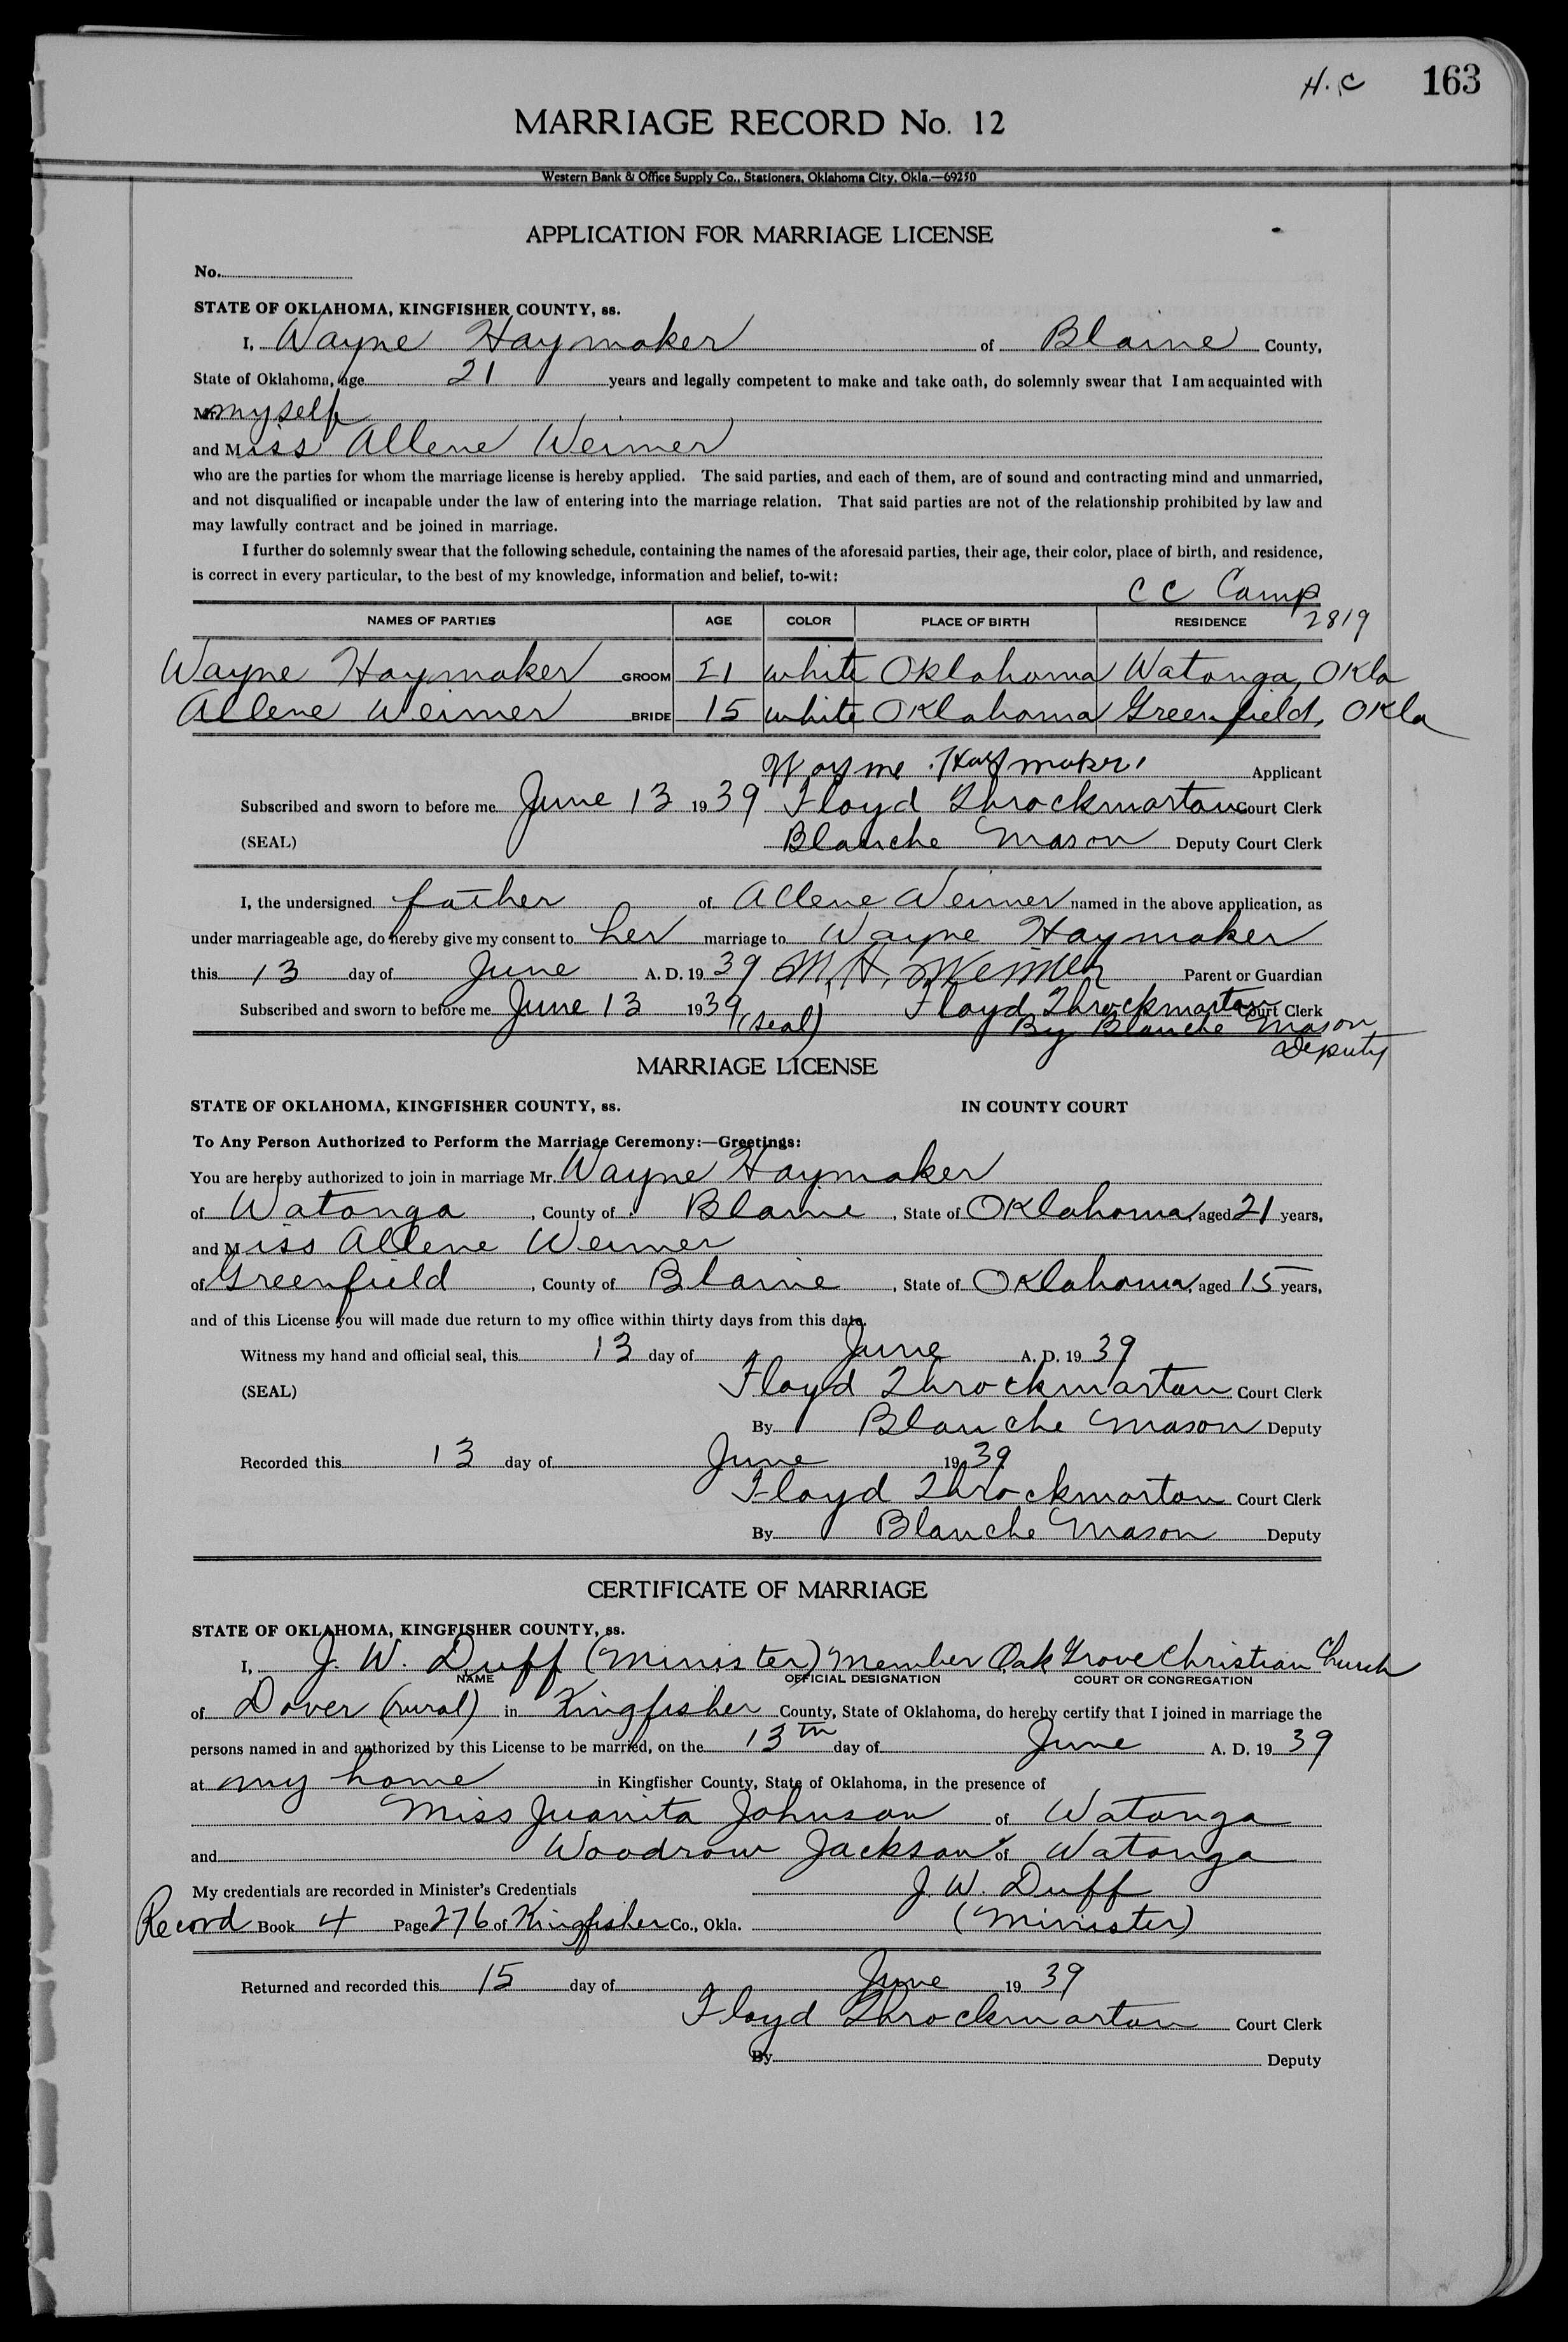 H. C 163
MARRIAGE RECORD No. 12
Western Bank & Office Supply Co., Stationers, Oklahoma City, Okla.—69250
APPLICATION FOR MARRIAGE LICENSE
No.
STATE OF OKLAHOMA, KINGFISHER COUNTY, ss.
I, Wayne Haymaker of Blaine County,
State of Oklahoma, age 21 years and legally competent to make and take oath, do solemnly swear that I am acquainted with
Mr. myself
and Miss Allene Weimer
who are the parties for whom the marriage license is hereby applied. The said parties, and each of them, are of sound and contracting mind and unmarried,
and not disqualified or incapable under the law of entering into the marriage relation. That said parties are not of the relationship prohibited by law and
may lawfully contract and be joined in marriage.
I further do solemnly swear that the following schedule, containing the names of the aforesaid parties, their age, their color, place of birth, and residence,
is correct in every particular, to the best of my knowledge, information and belief, to-wit:
C C Camp
NAMES OF PARTIES AGE COLOR PLACE OF BIRTH RESIDENCE 2819
Wayne Haymaker GROOM 21 white Oklahoma Watonga, Okla
Allene Weimer BRIDE 15 white Oklahoma Greenfield, Okla
Wayne Haymaker Applicant
Subscribed and sworn to before me June 13 1939 Floyd Throckmorton Court Clerk
(SEAL) Blanche Mason Deputy Court Clerk
I, the undersigned father of Allene Weimer named in the above application, as
under marriageable age, do hereby give my consent to her marriage to Wayne Haymaker
this 13 day of June A. D. 1939 M. H. Weimer Parent or Guardian
Subscribed and sworn to before me June 13 1939 Floyd Throckmorton Court Clerk
(Seal) By Blanche Mason
Deputy
MARRIAGE LICENSE
STATE OF OKLAHOMA, KINGFISHER COUNTY, ss. IN COUNTY COURT
To Any Person Authorized to Perform the Marriage Ceremony:—Greetings:
You are hereby authorized to join in marriage Mr. Wayne Haymaker
of Watonga, County of Blaine, State of Oklahoma, aged 21 years,
and Miss Allene Weimer
of Greenfield, County of Blaine, State of Oklahoma, aged 15 years,
and of this License you will made due return to my office within thirty days from this date.
Witness my hand and official seal, this 13 day of June A. D. 1939
(SEAL) Floyd Throckmorton Court Clerk
By Blanche Mason Deputy
Recorded this 13 day of June 1939
Floyd Throckmorton Court Clerk
By Blanche Mason Deputy
CERTIFICATE OF MARRIAGE
STATE OF OKLAHOMA, KINGFISHER COUNTY, ss.
I, J. W. Duff (Minister) Member Oak Grove Christian Church
NAME OFFICIAL DESIGNATION COURT OR CONGREGATION
of Dover (rural) in Kingfisher County, State of Oklahoma, do hereby certify that I joined in marriage the
persons named in and authorized by this License to be married, on the 13th day of June A. D. 1939
at my home in Kingfisher County, State of Oklahoma, in the presence of
Miss Juanita Johnson of Watonga
and Woodrow Jackson of Watonga
My credentials are recorded in Minister's Credentials J. W. Duff
Record Book 4 Page 276 of Kingfisher Co., Okla. (Minister)
Returned and recorded this 15 day of June 1939
Floyd Throckmorton Court Clerk
By Deputy